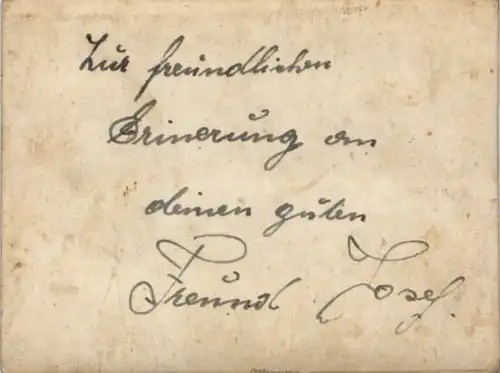 Zur freundlichen
Erinerung an
deinen guten
Freund Josef.